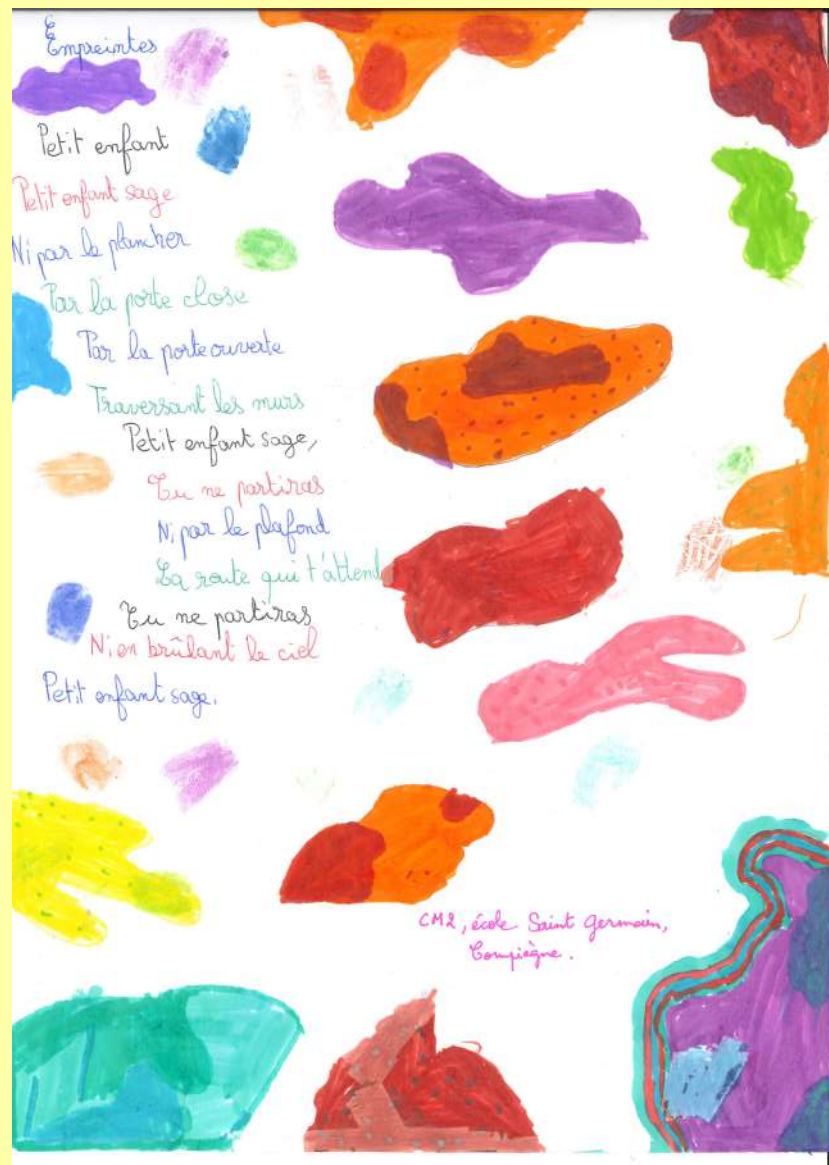 Empreintes
Petit enfant
Petit enfant sage
Ni par le plancher
Par la porte close
Par la porte ouverte
Traversant les murs
Petit enfant sage,
Tu ne partiras
Ni par le plafond
La route qui t'attend
Tu ne partiras
Ni en brûlant le ciel
Petit enfant sage.
CM2, école Saint Germain,
Compiègne.